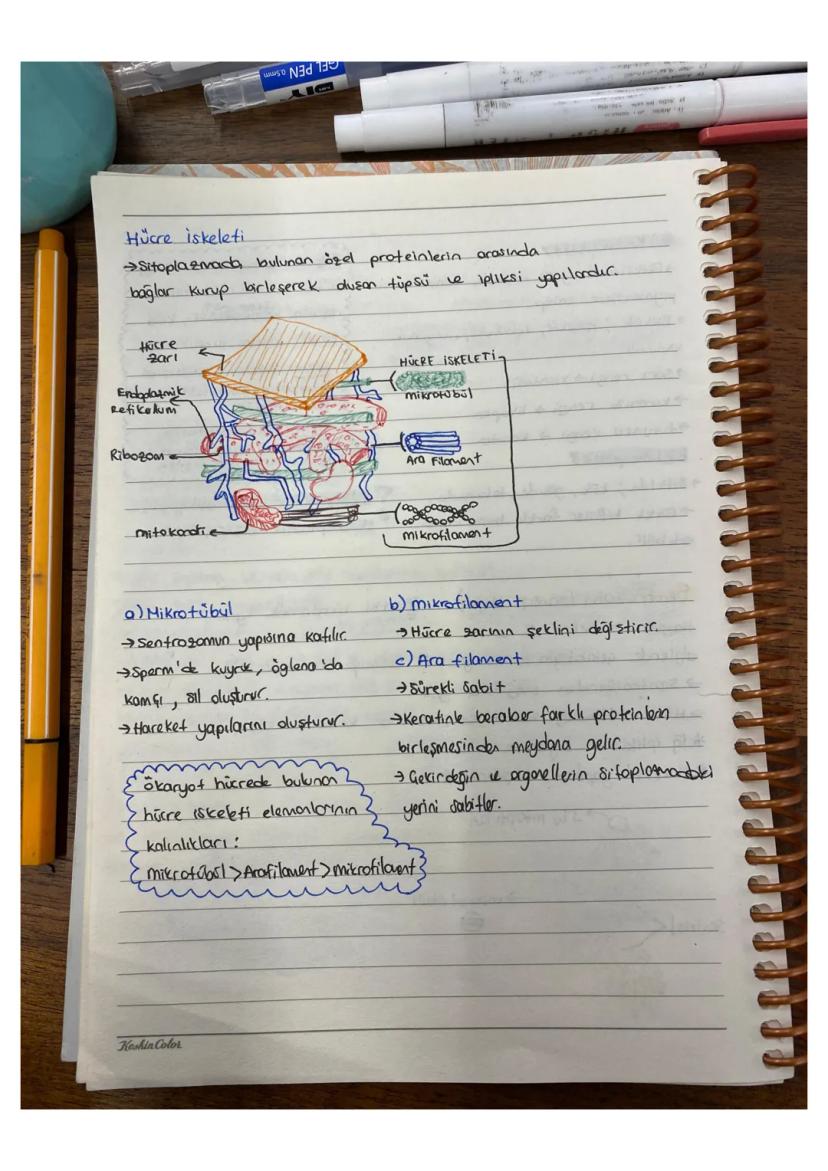 GEL PEN 0.5mm
Hücre iskeleti
→Sitoplazmada bulunan özel proteinlerin arasında
bağlar kurup birleşerek oluşan tüpsü ve ipliksi yapılardır.
Hücre
zarı
Endoplazmik
Retikulum
Ribozom
mitokondri
HÜCRE İSKELETİ
mikrotübül
Ara Filament
mikrofilament
a) Mikrotübül
→Sentrozomun yapısına katılır
→Sperm'de kuyruk, öglena'da
kamçı, sil oluşturur.
→Hareket yapılarını oluşturur.
b) mikrofilament
→Hücre zarının şeklini değiştirir.
c) Ara filament
→Sürekli sabit
→Keratinle beraber farklı proteinlerin
birleşmesinden meydana gelir.
→Çekirdeğin ve organellerin sitoplazmadaki
yerini sabitler.
ökaryot hücrede bulunan
hücre iskeleti elemanlarının
kalınlıkları:
mikrotübül > Arafilament > mikrofilament
KeskinColor